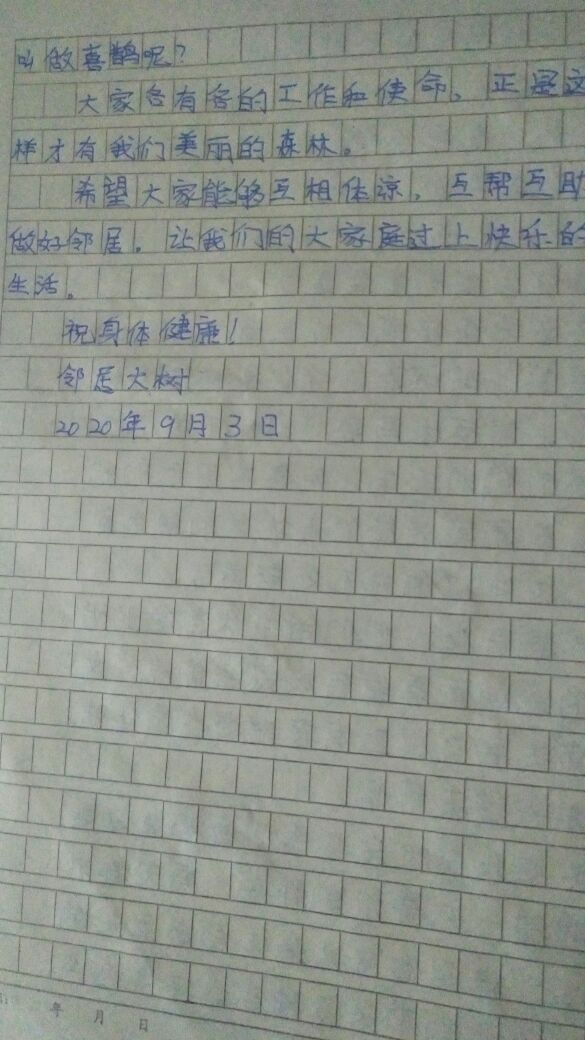 叫做喜鹊呢？
大家各有各的工作和使命。正是这
样才有我们美丽的森林。
希望大家能够互相体谅，互帮互助
做好邻居。让我们的大家庭过上快乐的
生活。
祝身体健康！
邻居大树
2020年9月3日
年 月 日